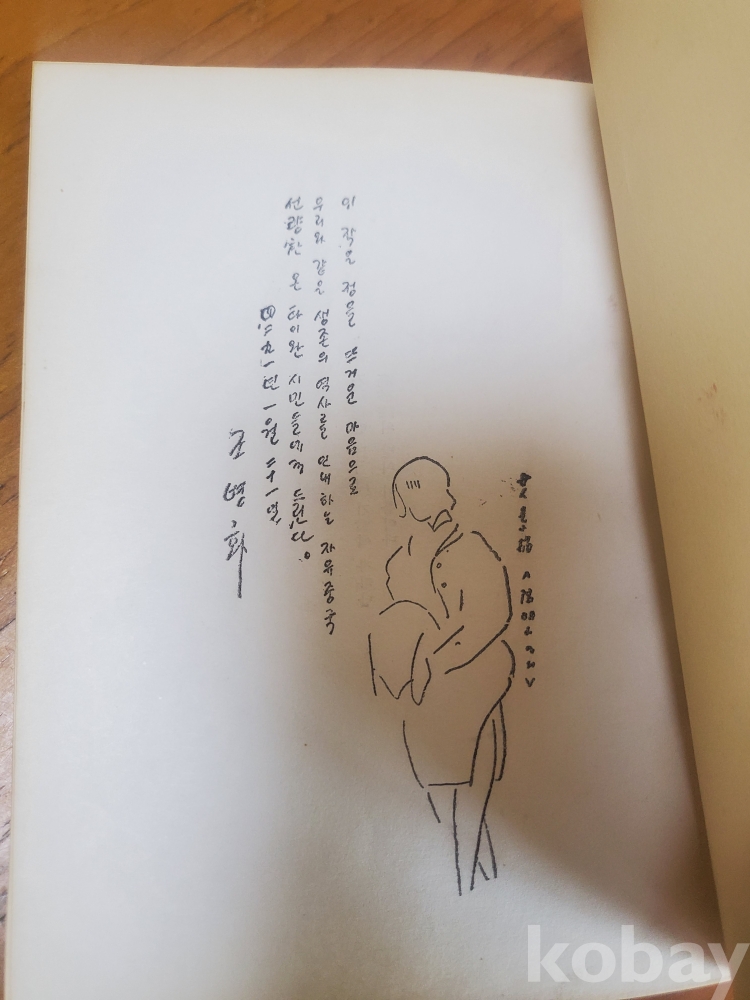 陽明山
이 작은 정을 뜨거운 마음으로
우리와 같은 생존의 역사를 인내하는 자유중국
선량한 온 타이완 시민들에게 드린다。
四二九一년 一월 二十一일
조병화
kobay